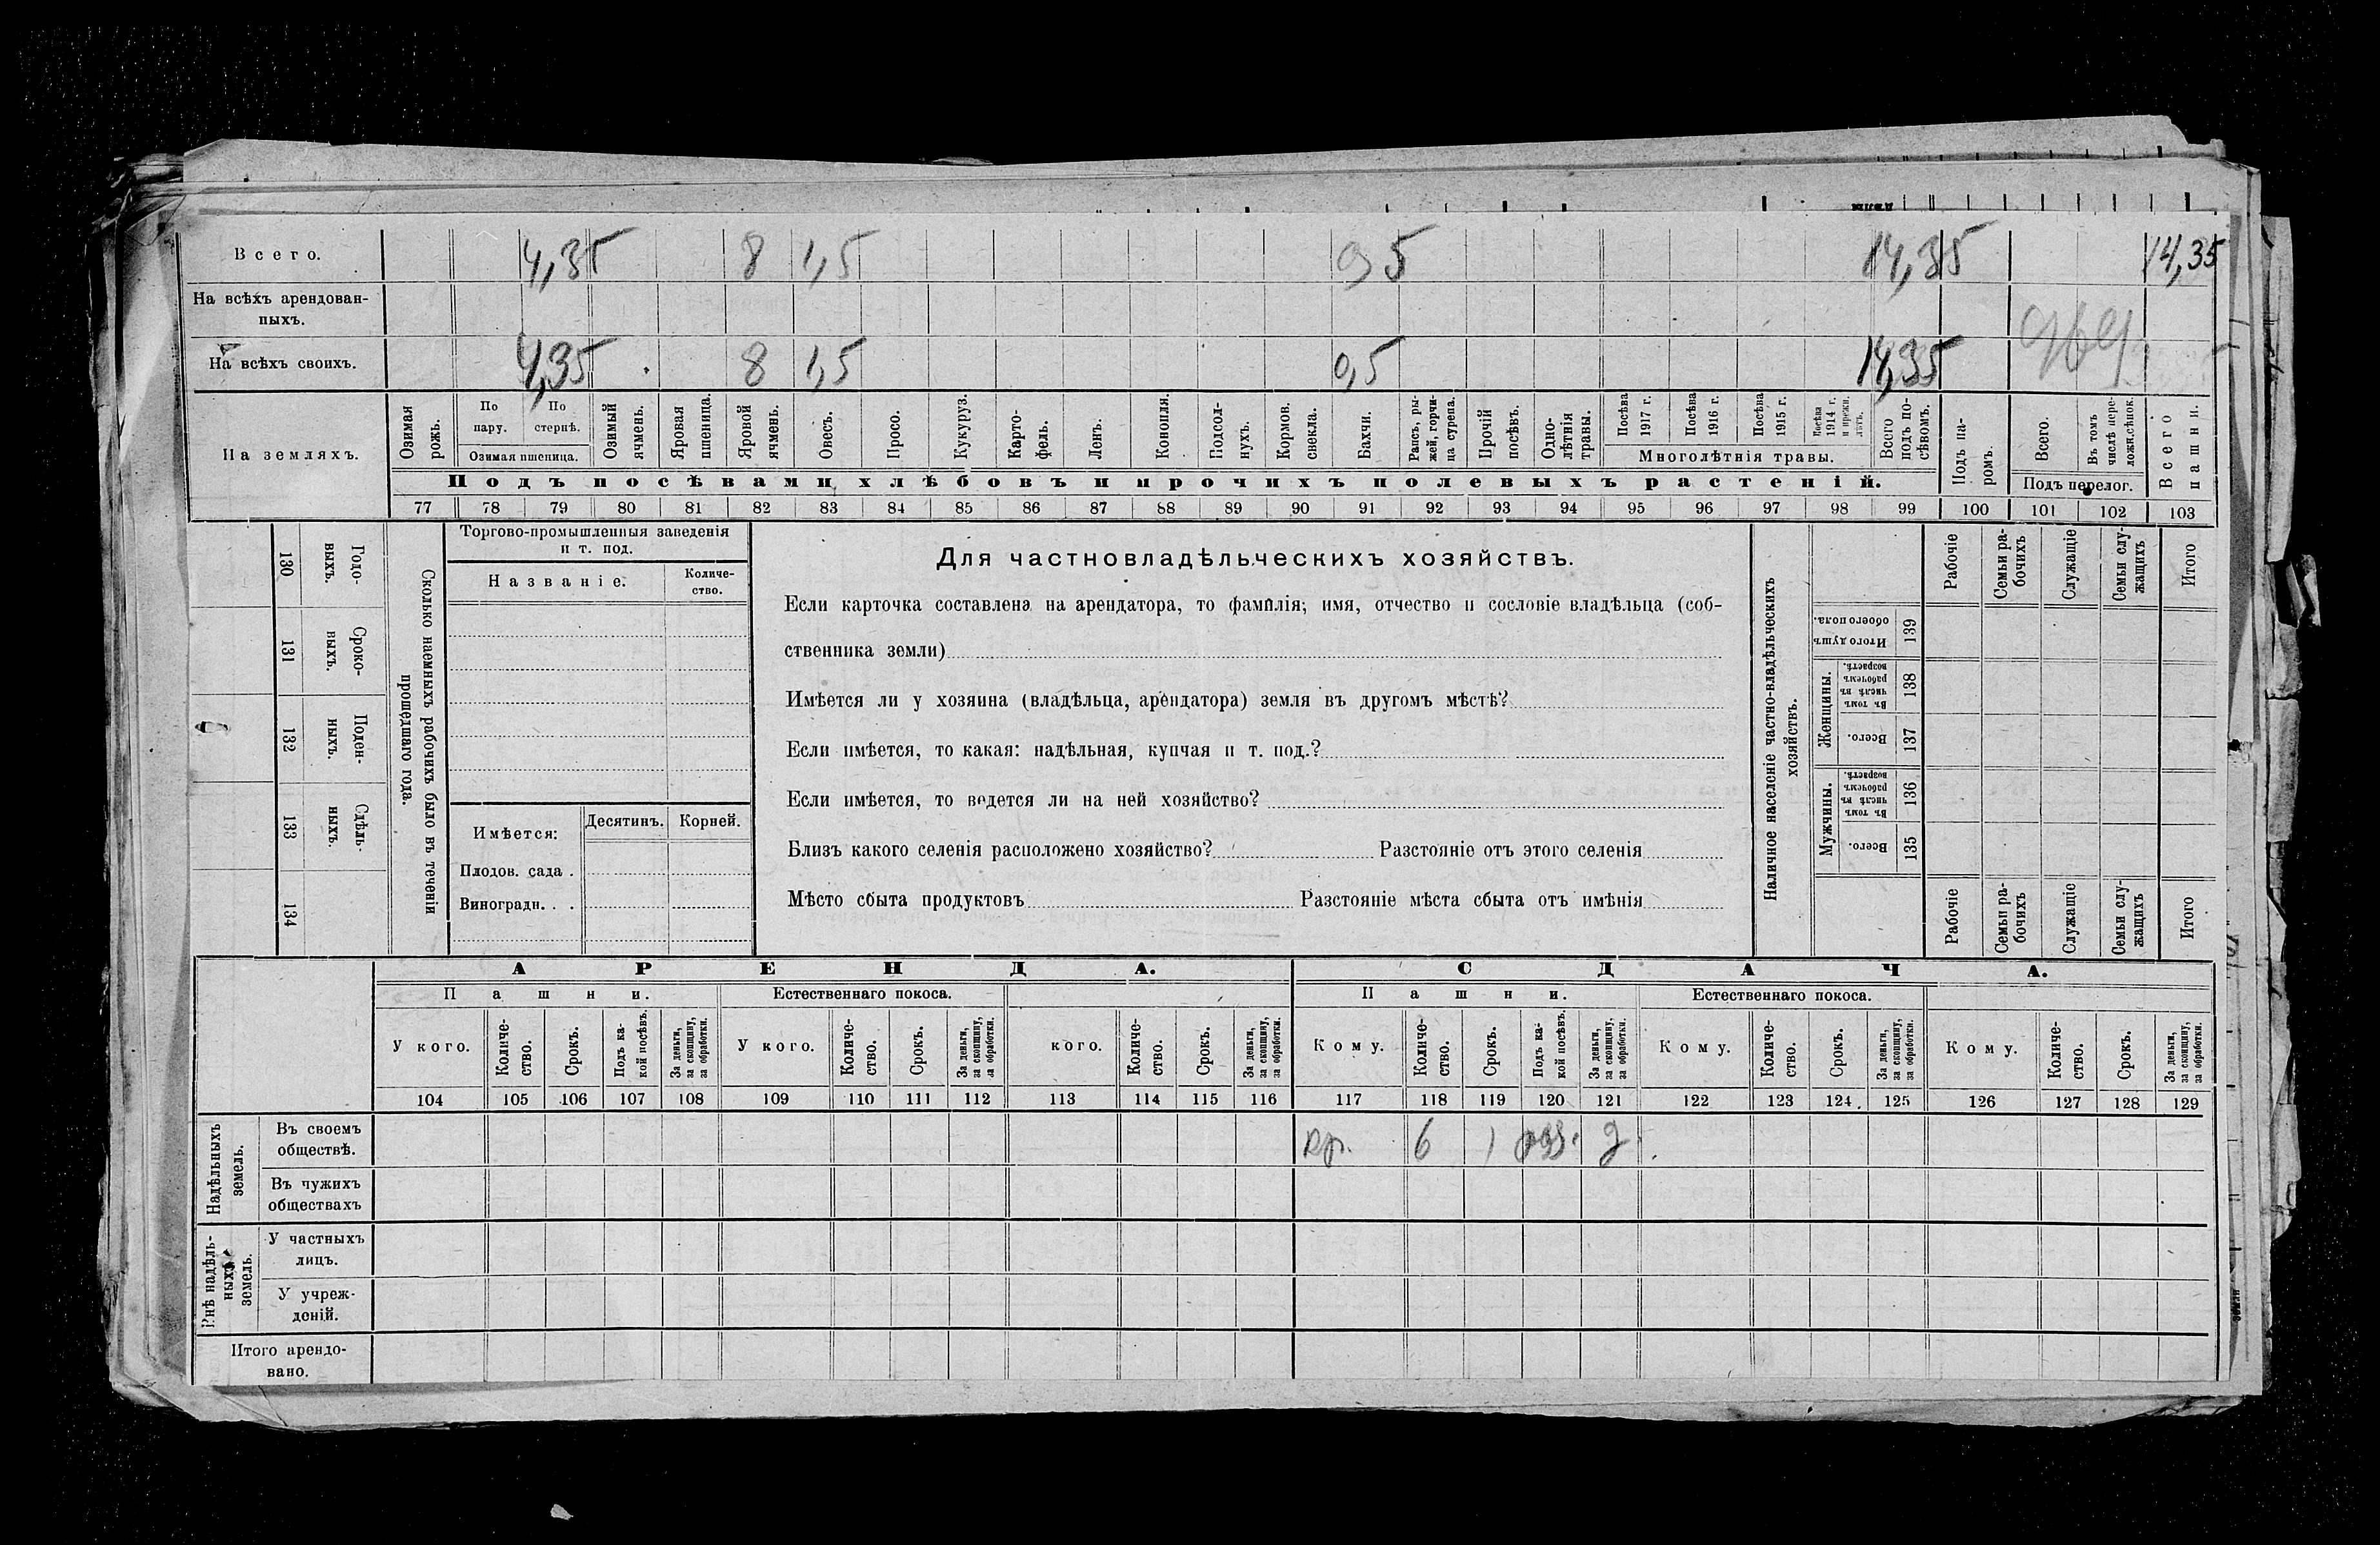 Всего. 4,35 8 1,5 0 5 14,35 14,35
На всѣхъ арендован-
ныхъ.
На всѣхъ своихъ. 4,35 8 1,5 0,5 14,35
На земляхъ.
Озимая рожь.
По пару.
По стернѣ.
Озимая пшеница.
Озимый ячмень.
Яровая пшеница.
Яровой ячмень.
Овесъ.
Просо.
Кукуруз.
Карто-
фель.
Ленъ.
Конопля.
Подсол-
нухъ.
Кормов. свекла.
Бахчи.
Рапсъ, ры-
жей, горчи-
ца сурепа.
Прочій посѣвъ.
Одно-
лѣтнія травы.
Посѣва 1917 г.
Посѣва 1916 г.
Посѣва 1915 г.
Посѣва 1914 г. и прежн. лѣтъ.
Многолѣтнія травы.
Всего подъ по-
сѣвомъ.
Подъ па-
ромъ.
Всего.
Въ томъ числѣ пере-
ложн.сѣнок.
Подъ перелог.
Всего пашни.
Подъ посѣвами хлѣбовъ и прочихъ полевыхъ растеній.
77 78 79 80 81 82 83 84 85 86 87 88 89 90 91 92 93 94 95 96 97 98 99 100 101 102 103
130 Годо-
выхъ.
131 Сроко-
выхъ.
132 Поден-
ныхъ.
133 Сдѣль-
ныхъ.
134
Сколько наемныхъ рабочихъ было въ теченіи
прошедшаго года.
Торгово-промышленныя заведенія
и т. под.
Названіе.
Количе-
ство.
Имѣется: Десятинъ. Корней.
Плодов. сада .
Виноградн. . .
Для частновладѣльческихъ хозяйствъ.
Если карточка составлена на арендатора, то фамилія; имя, отчество и сословіе владѣльца (соб-
ственника земли)
Имѣется ли у хозяина (владѣльца, арендатора) земля въ другомъ мѣстѣ?
Если имѣется, то какая: надѣльная, купчая и т. под.?
Если имѣется, то ведется ли на ней хозяйство?
Близъ какого селенія расположено хозяйство? Разстояніе отъ этого селенія
Мѣсто сбыта продуктовъ Разстояніе мѣста сбыта отъ имѣнія
Наличное населеніе частно-владѣльческихъ
хозяйствъ.
Рабочіе
Семьи ра-
бочихъ
Служащіе
Семьи слу-
жащихъ
Итого
Итого душъ обоего пола. 139
Женщины.
Въ томъ числѣ въ рабочемъ возрастѣ. 138
Всего. 137
Мужчины.
Въ томъ числѣ въ рабочемъ возрастѣ. 136
Всего. 135
Рабочіе
Семьи ра-
бочихъ
Служащіе
Семьи слу-
жащихъ
Итого
АРЕНДА. СДАЧА.
Пашни. Естественнаго покоса. Пашни. Естественнаго покоса.
У кого.
Количе-
ство.
Срокъ.
Подъ ка-
кой посѣвъ.
За деньги,
за скопщину,
за обработки.
У кого.
Количе-
ство.
Срокъ.
За деньги,
за скопщину,
за обработки.
кого.
Количе-
ство.
Срокъ.
За деньги,
за скопщину,
за обработки.
Кому.
Количе-
ство.
Срокъ.
Подъ ка-
кой посѣвъ.
За деньги,
за скопщину,
за обработки.
Кому.
Количе-
ство.
Срокъ.
За деньги,
за скопщину,
за обработки.
Кому.
Количе-
ство.
Срокъ.
За деньги,
за скопщину,
за обработки.
104 105 106 107 108 109 110 111 112 113 114 115 116 117 118 119 120 121 122 123 124 125 126 127 128 129
Надѣльныхъ
земель.
Въ своемъ
обществѣ.
кр. 6 1 д.
Въ чужихъ
обществахъ
Внѣ надѣль-
ныхъ
земель.
У частныхъ
лицъ.
У учреж-
деній.
Итого арендо-
вано.